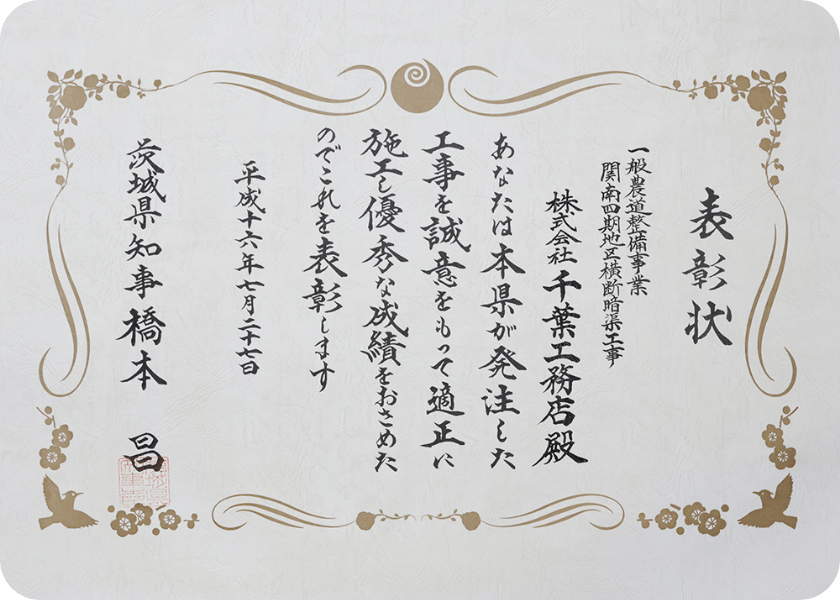 表彰状
一般農道整備事業
関南四期地区横断暗渠工事
株式会社 千葉工務店殿
あなたは本県が発注した
工事を誠意をもって適正に
施工し優秀な成績をおさめた
のでこれを表彰します
平成十六年七月二十七日
茨城県知事 橋本 昌